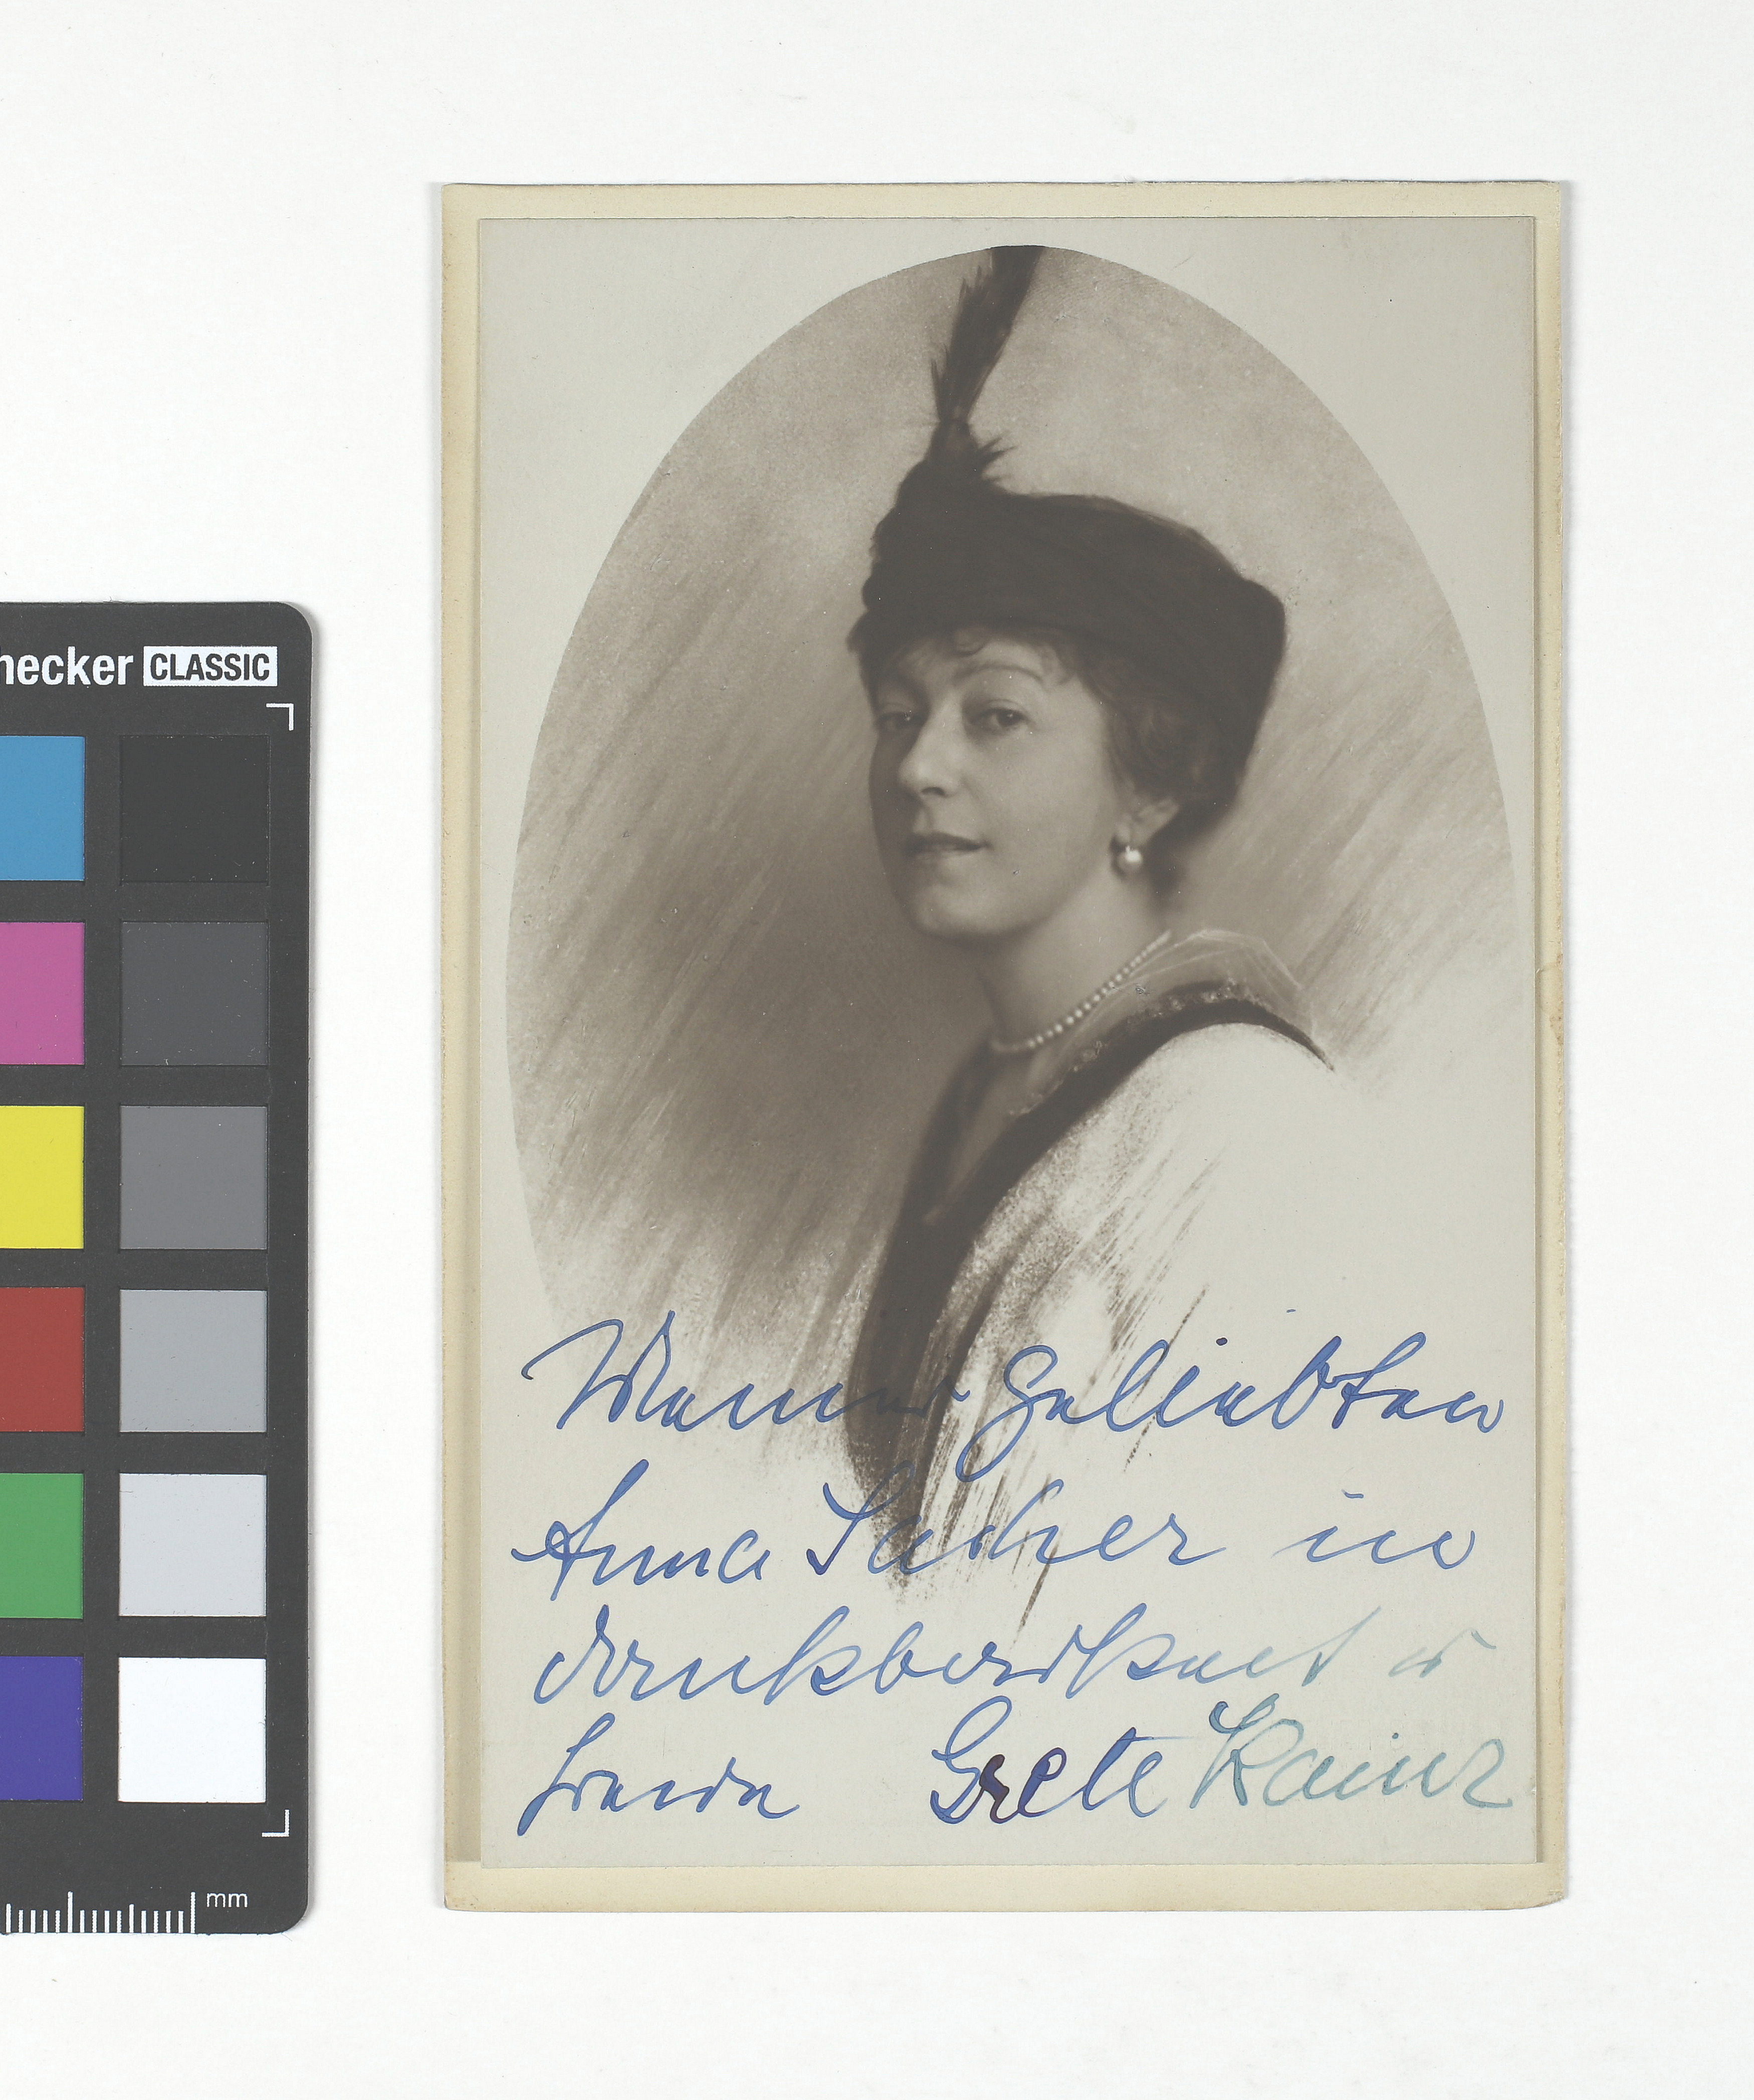 hecker CLASSIC
mm
Meiner geliebten
Anna Sacher in
Dankbarkeit u
Freude Grete Kainz